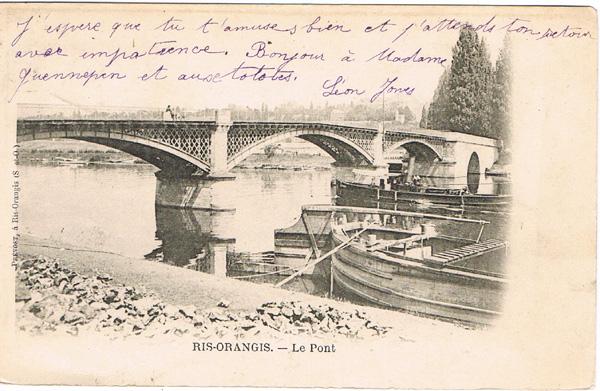 J'espère que tu t'amuses bien et j'attends ton retour
avec impatience. Bonjour à Madame
Guennepin et aux totötes.
Léon Jones
RIS-ORANGIS. — Le Pont
à Ris-Orangis (S.-&-O.)